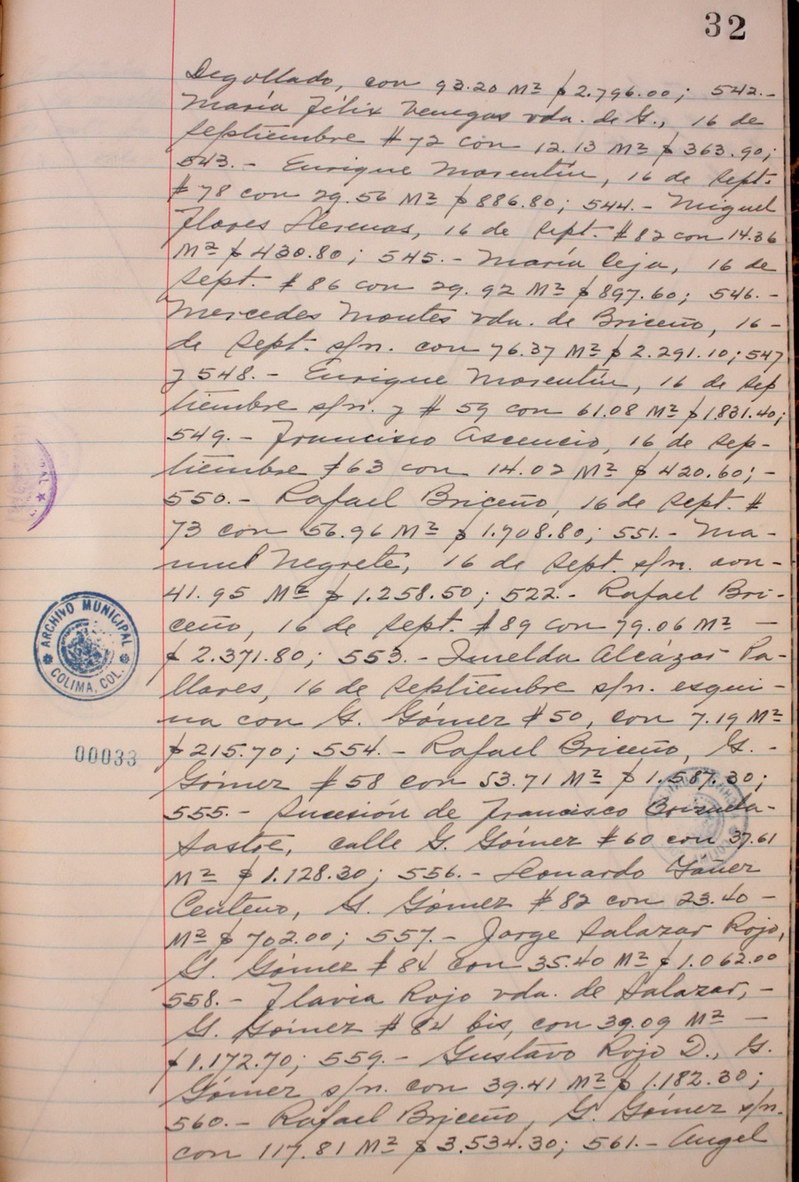 32
Degollado, con 93.20 M² $2.796.00; 542.-
María Félix Venegas vda. de G., 16 de
septiembre #72 con 12.13 M² $363.90;
543.- Enrique Morentín, 16 de Sept.
#78 con 29.56 M² $886.80; 544.- Miguel
Flores Llerenas, 16 de Sept. #82 con 14.36
M² $430.80; 545.- María Ceja, 16 de
Sept. #86 con 29.92 M² $897.60; 546.-
Mercedes Montes vda. de Briceño, 16-
de Sept. s/n. con 76.37 M² $2.291.10; 547
y 548.- Enrique Morentín, 16 de Sep
tiembre s/n. y #59 con 61.08 M² $1.831.40;
549.- Francisco Ascencio, 16 de Sep-
tiembre #63 con 14.02 M² $420.60;-
550.- Rafael Briceño, 16 de Sept. #
73 con 56.96 M² $1.708.80; 551.- Ma-
nuel Negrete, 16 de Sept. s/n. con-
41.95 M² $1.258.50; 522.- Rafael Bri-
ceño, 16 de Sept. #89 con 79.06 M² —
$2.371.80; 553.- Imelda Alcázar Pa-
llares, 16 de Septiembre s/n. esqui-
na con G. Gómez #50, con 7.19 M²
$215.70; 554.- Rafael Briceño, G.-
Gómez #58 con 53.71 M² $1.587.30;
555.- Sucesión de Francisco Brizuela-
Sastré, calle G. Gómez #60 con 37.61
M² $1.128.30; 556.- Leonardo Yañez
Centeno, G. Gómez #82 con 23.40-
M² $702.00; 557.- Jorge Salazar Rojo,
G. Gómez #84 con 35.40 M² $1.062.00
558.- Flavia Rojo vda. de Salazar,-
G. Gómez #84 bis, con 39.09 M² —
$1.172.70; 559.- Gustavo Rojo D., G.
Gómez s/n. con 39.41 M² $1.182.30;
560.- Rafael Briceño, G. Gómez s/n.
con 117.81 M² $3.534.30; 561.- Angel
ARCHIVO MUNICIPAL
COLIMA, COL.
00033